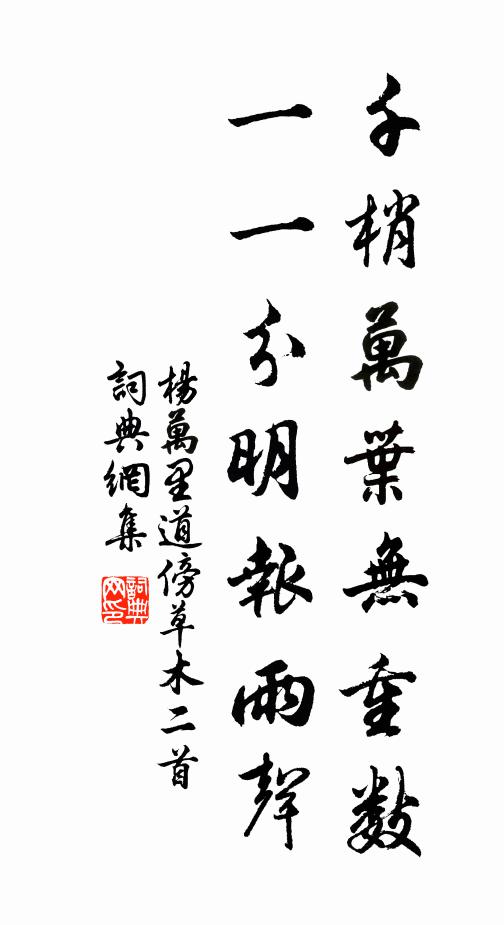 千梢萬葉無重數
一一分明報雨聲
楊萬里道傍草木二首
詞典網集
詞典網印